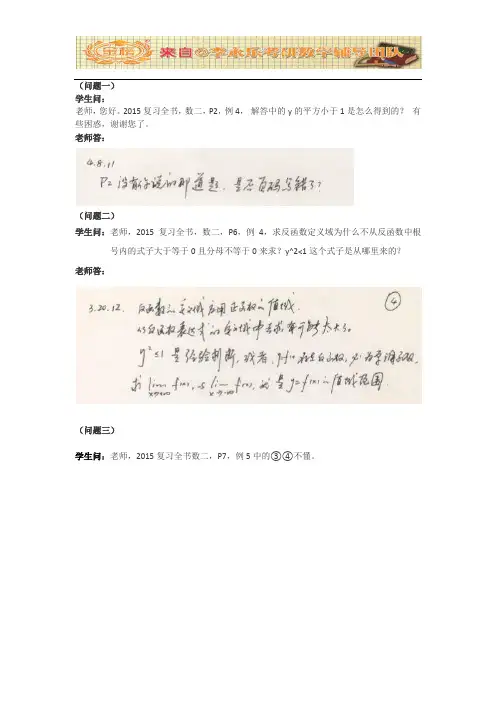 金榜
来自@李永乐考研数学辅导团队
(问题一)
学生问:
老师,您好。2015复习全书,数二,P2,例4, 解答中的y的平方小于1是怎么得到的? 有
些困惑,谢谢您了。
老师答:
4.8.11
P2 没有你说的那道题,是否页码写错了?
(问题二)
学生问:老师,2015 复习全书,数二,P6,例 4,求反函数定义域为什么不从反函数中根
号内的式子大于等于0且分母不等于0来求?y^2<1这个式子是从哪里来的?
老师答:
3.20.12. 反函数的定义域应用正函数的值域. ④
从反函数表达式的
y²≤1 是经验判断, 或者, y=f(x) 存在反函数, 必为单调函数,
求 lim x→+∞ f(x), 与 lim x→-∞ f(x), 就是y=f(x)的值域范围.
(问题三)
学生问:老师,2015复习全书数二,P7,例5中的③④不懂。